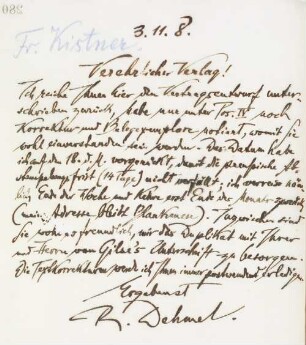 280
3.11.8.
Fr. Kistner.
Verehrlicher Verlag!
Ich reiche Ihnen hier den Vertragsentwurf unter-
schrieben zurück, habe nur unter Pos. IV noch
Korrektur- und Belegexemplare notiert, womit Sie
wohl einverstanden sein werden. Das Datum habe
ich auf den d. M. vorgerückt, damit die preussische
frist (14 Tage) nicht verfällt; ich verreise
Ende der Woche und kehre erst Ende des Monats zurück
(meine Adresse bleibt Blankenese). Inzwischen sind
Sie wohl so freundlich, mir das Duplikat mit Ihrer
und Herrn von Gilsa's Unterschrift zu besorgen.
Die Textkorrekturen werde ich Ihnen immer postwendend erledigen.
Ergebenst
R. Dehmel.